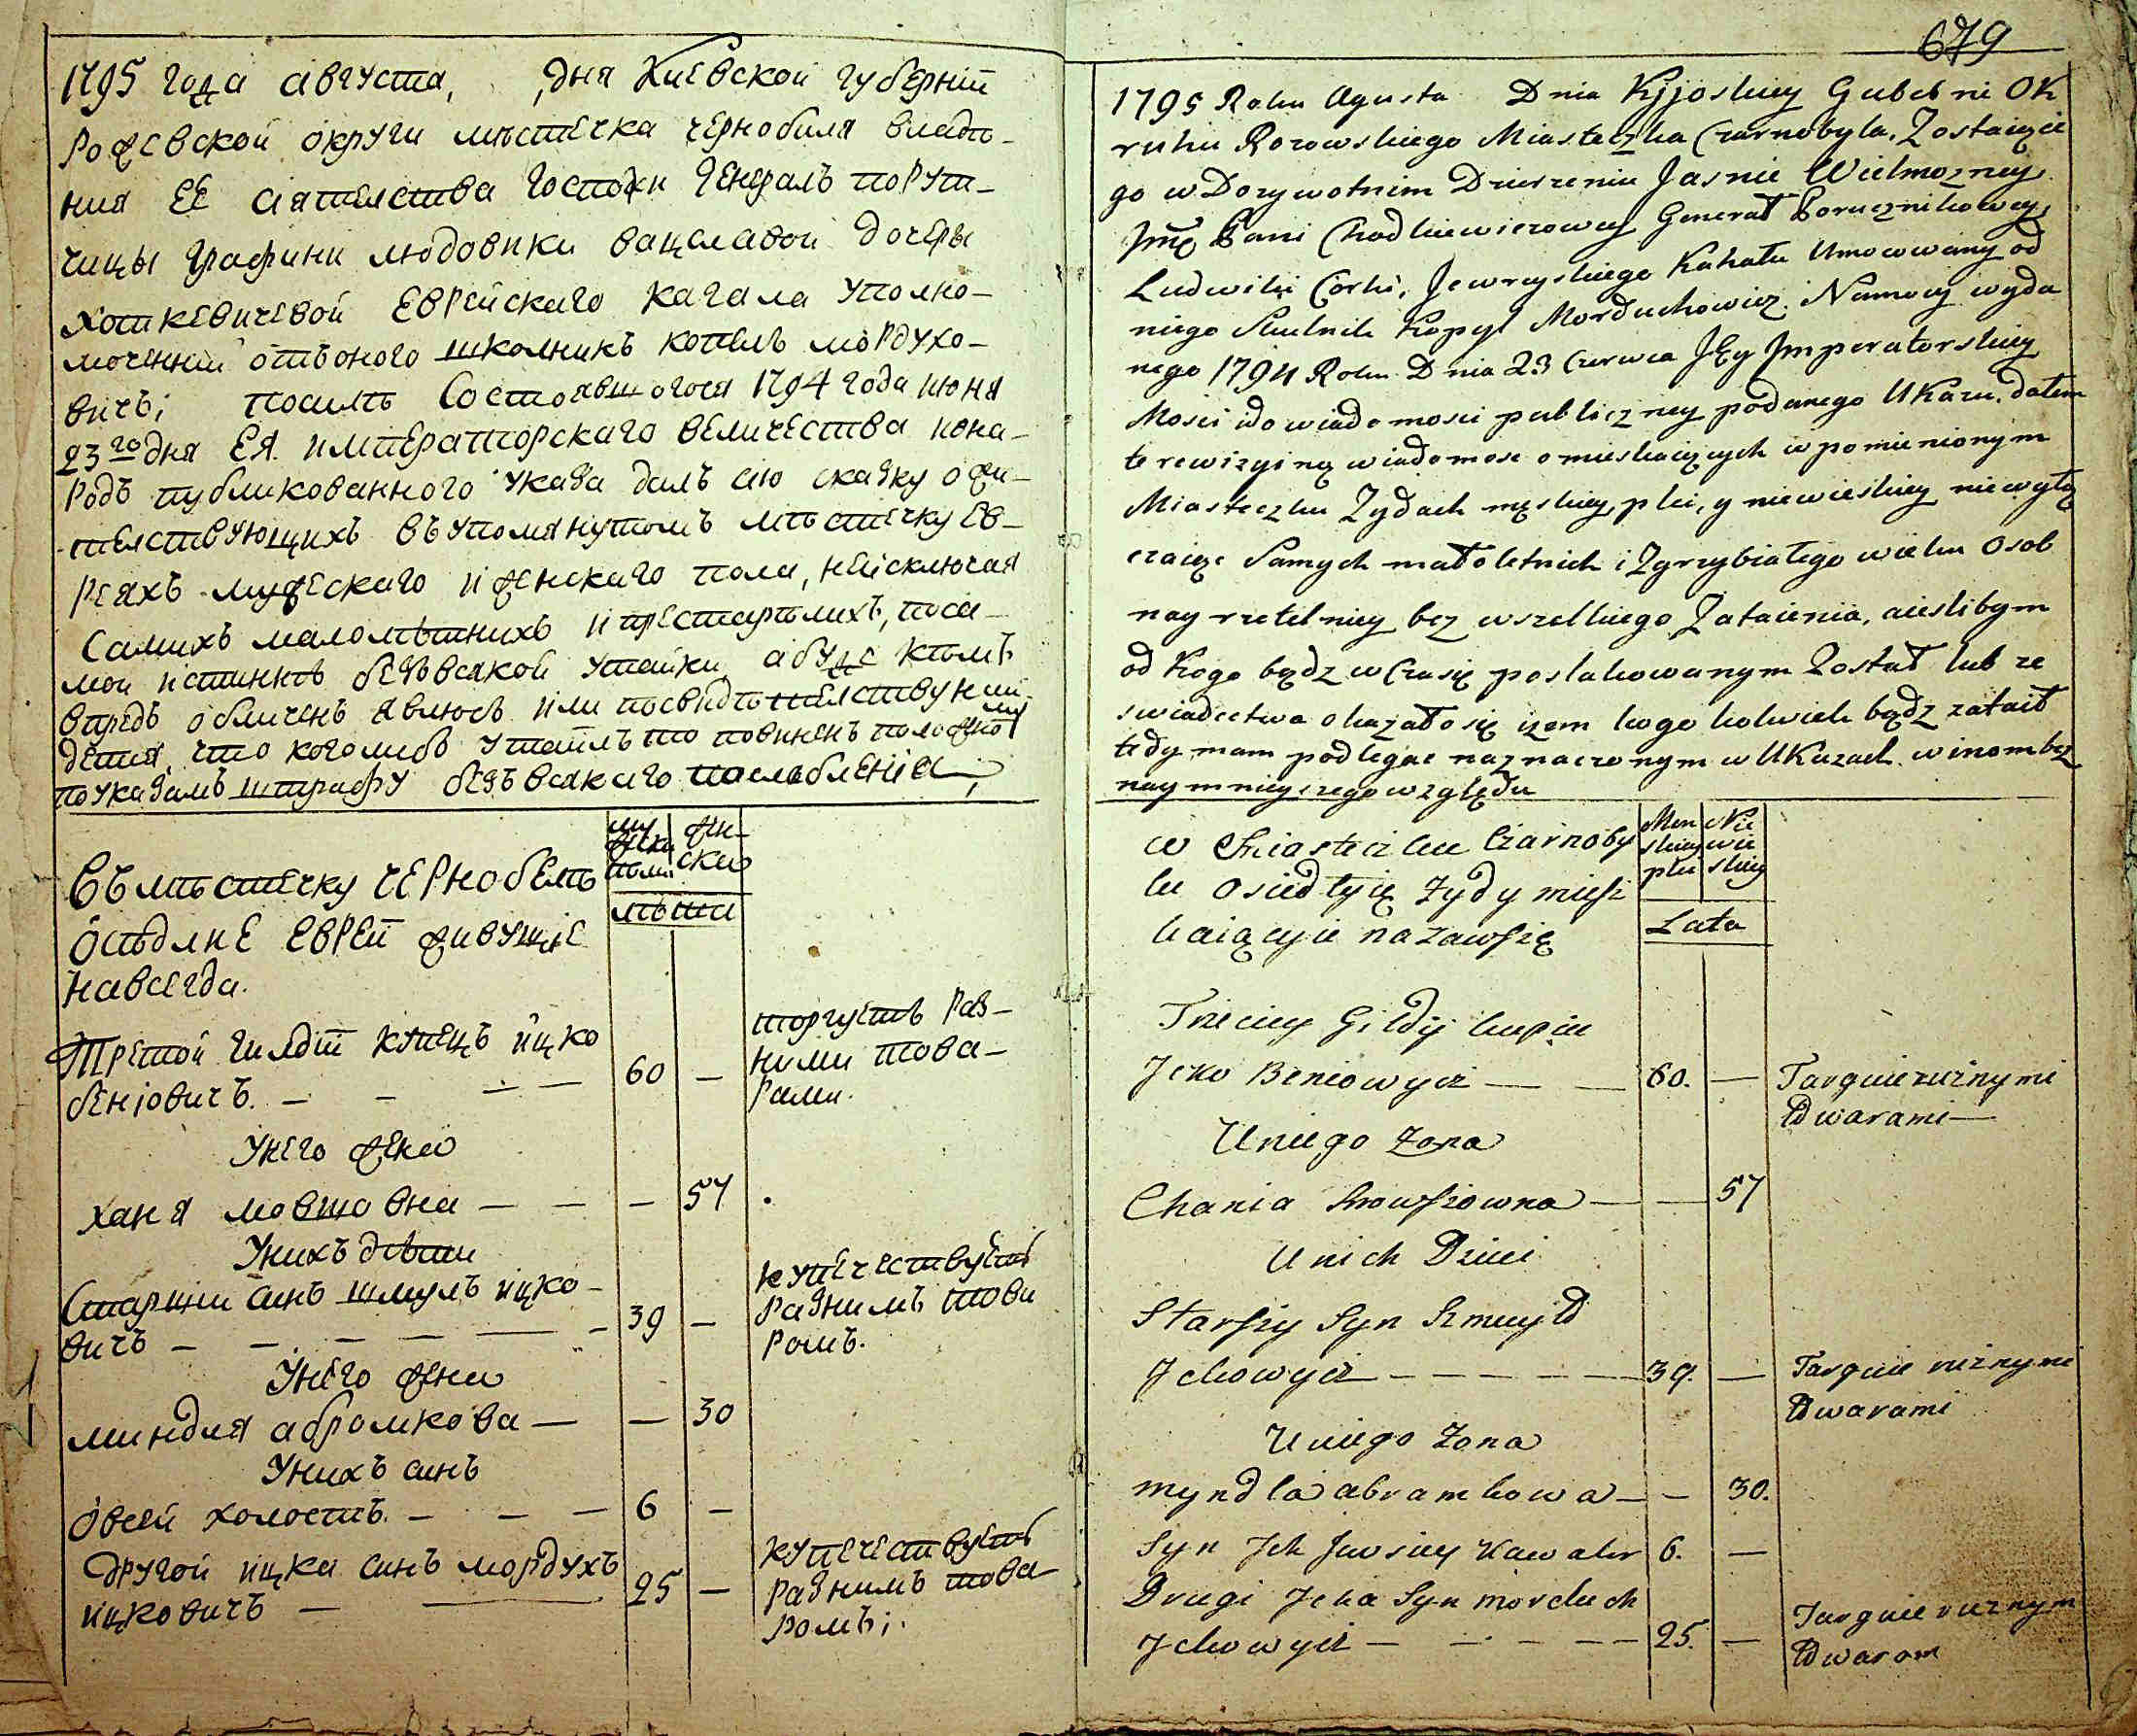 1795 года августа, дня Киевской губерніи
Рожевской округи мѣстечка чернобиля владѣ-
ния ЕЕ сіятелства Госпожи Генералъ поруш-
чицы Графини людовики вацлавой дочеры
Хоткевичевой Еврейскаго кагала уполно-
моченній отъ оного школникъ копелъ мордухо-
вичъ; посилѣ состоявшогося 1794 года июня
23го дня ЕЯ императорскаго величества и на-
родъ публикованного указа далъ сию сказку о жи-
телствующихъ въ упомянутомъ мѣстечку ев-
реяхъ мужескаго и женскаго пола, не исключая
самихъ малолѣтнихъ и престарѣлихъ, по са-
мой истиннѣ безъ всякой утайки, а буде кѣмъ
впредъ обличенъ явлюсъ или по свидѣтелству
что кого либо утаилъ то повиненъ положенному
по указамъ штрафу безъ всякаго послабленія;
му
жеска
пола
жен-
ска
лѣта
Въ мѣстечку чернобелѣ
осѣдлие евреи живущіе
навсегда.
Третой гилдіи купецъ ицко
беніовичъ. — 60 —
торгуетъ раз-
ними това-
рами.
У него жена
ханя мовшовна — — 57
У нихъ дѣти
Старшій синъ шмулъ ицко-
вичъ — 39 —
купечествуетъ
разнимъ това
ромъ.
У него жена
миндля абрамкова — — 30
У нихъ синъ
овсей холостъ. — 6 —
другой ицка синъ мордухъ
ицковичъ — 25 —
купечествуетъ
разнимъ това-
ромъ;.
679
1795 Roku Agusta Dnia Kijoskiey Guberni Ok
ruhu Rozowskiego Miasteczka Czarnobyla, Zostaiące
go w Dozywotnim Dzierzeniu Jasnie Wielmozney
Jmę Pani Chodkiewiczowey Generał Porucznikowey,
Ludwiki Corki, Jewreyskiego Kahału Umocowany od
niego Szkolnik Kopyl Morduchowicz. Namocy wyda
nego 1794 Roku Dnia 23 Czerwca JEy Jmperatorskiey
Mosci i do wiadomosci publiczney podanego Ukazu, dałem
te rewizyiną wiadomosc o mieszkaiących w pomienionym
Miasteczku Zydach męskiey, płci, y niewieskiey nie wyłą
czaiąc Samych małoletnich i Zgrzybiałego wieku Osob
nay rzetelniey bez wszelkiego Zataienia, a iesliby m
od Kogo bądz w Czasię poslakowanym Został lub ze
swiadectwa okazało się izem kogo kolwiek bądz zataił
tedy mam podlegac naznaczonym w Ukazach winom bez
naymnieyszego względu
Men
skiey
płci
Nie
wie
skiey
Lata
w Miasteczku Czarnoby
lu Osiedłyię Zydy miesz
kaiącyie na zawszę
Trzeciey Gildy kupiec
Jcko Beniowycz — 60. —
Targuie ruznymi
towarami —
U niego zona
Chania Mowszowna — — 57
U nich Dzieci
Starszy Syn Szmuyło
Jckowycz — 39. —
Targuie ruznymi
towarami
U niego zona
myndla abramkowa — — 30.
Syn Jch Juwsiey kawaler 6. —
Drugi Jcka Syn morduch
Jckowycz — 25. —
Targuie ruznym
towarom